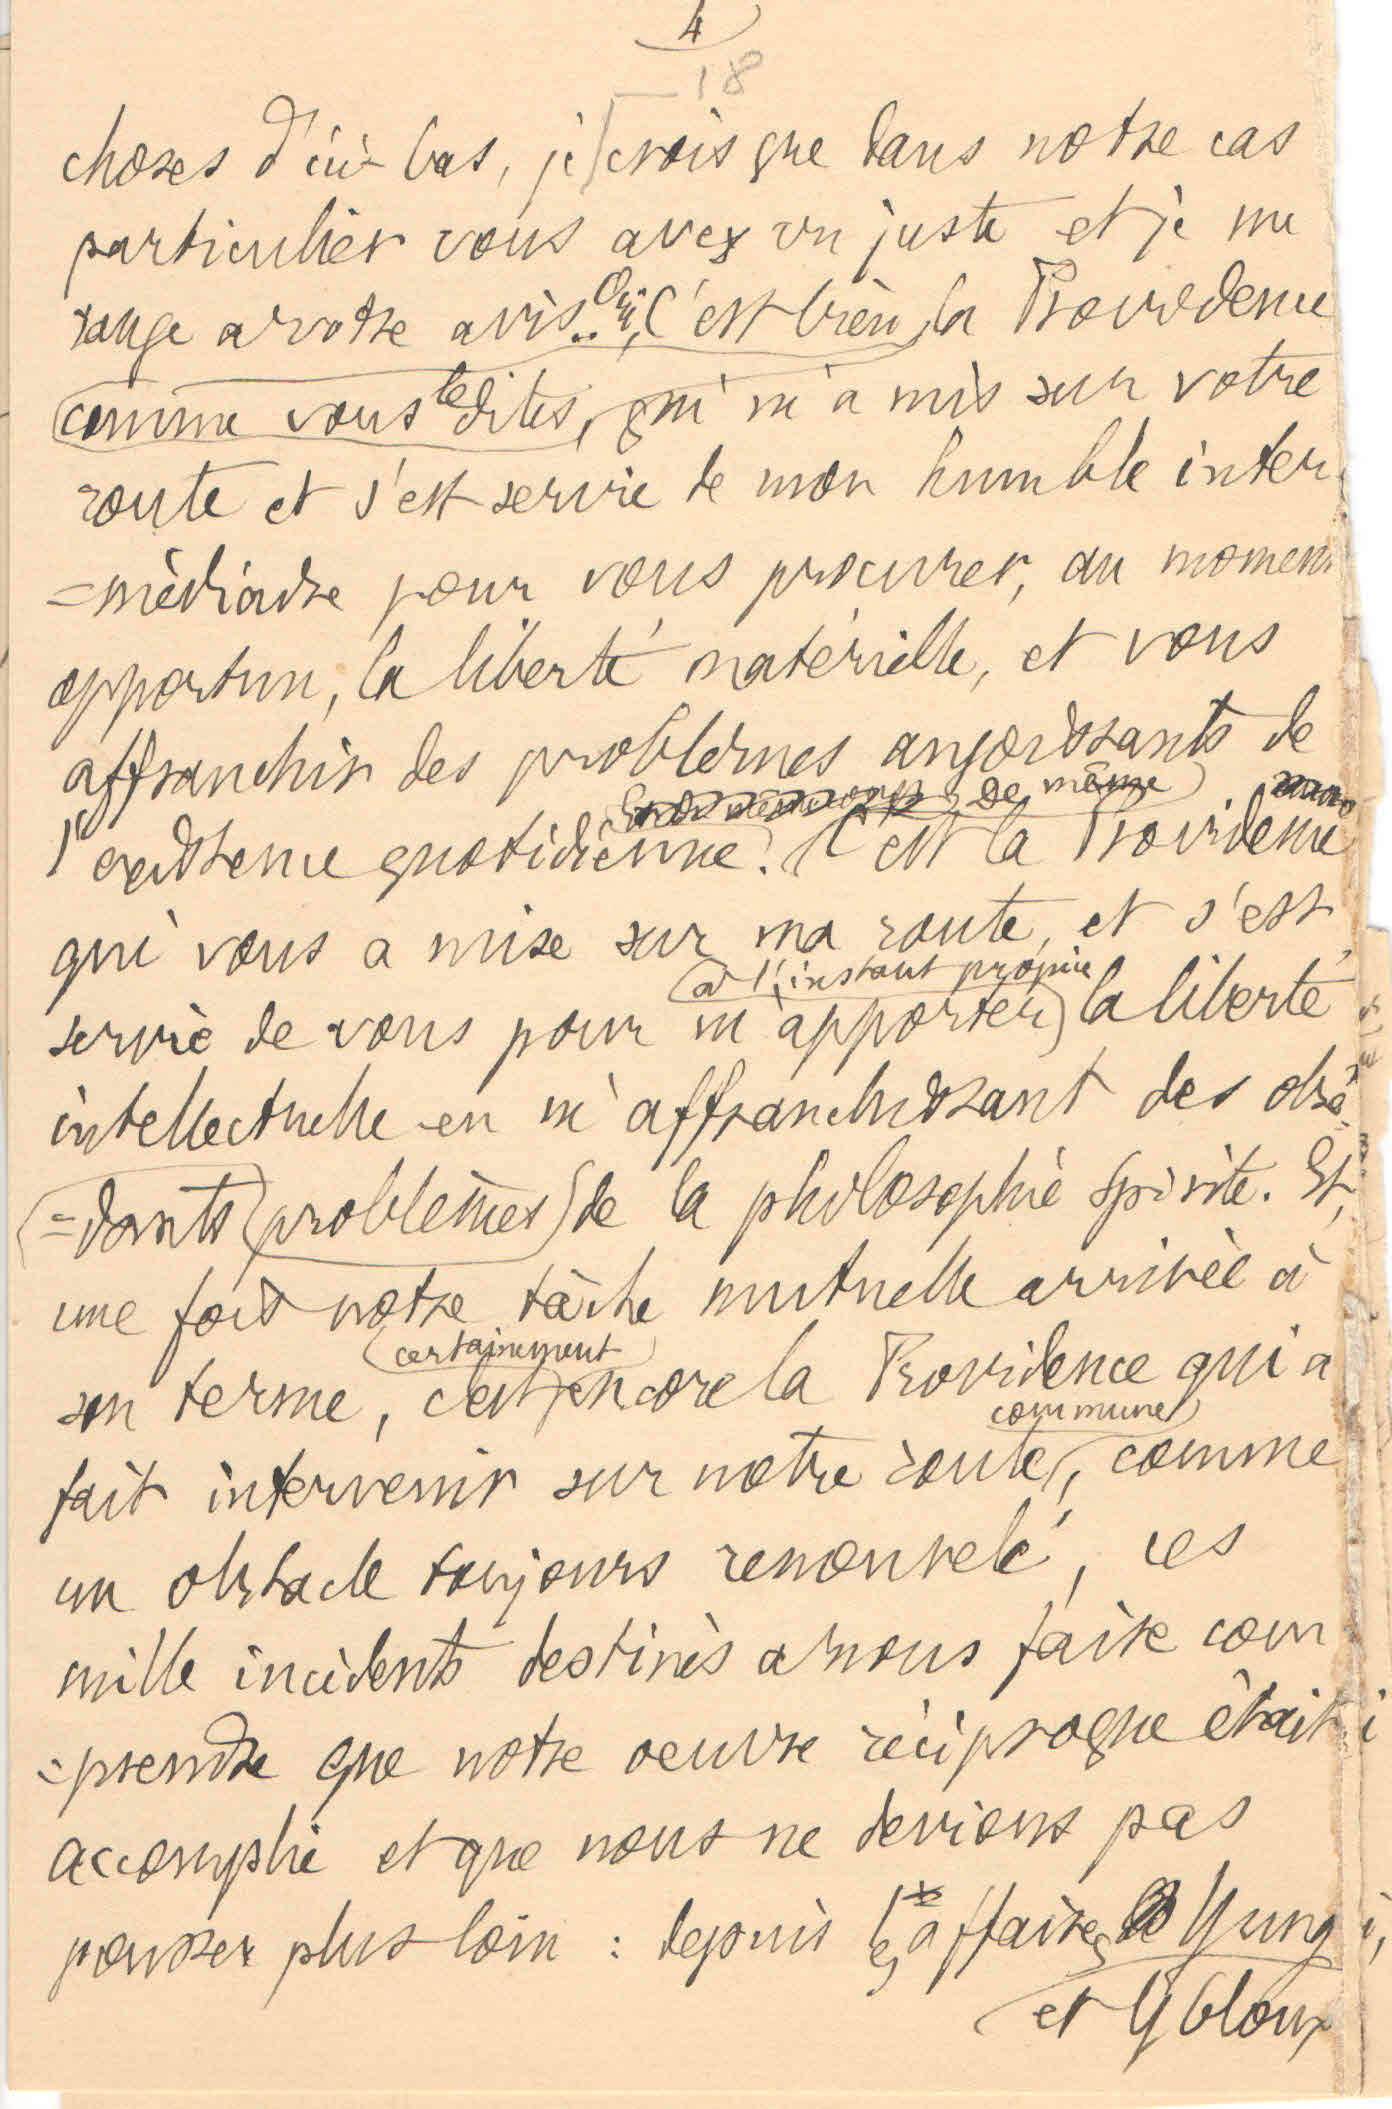 4
18
choses d'ici-bas, je crois que dans notre cas
particulier vous avez vu juste et je me
range à votre avis. Oui, c'est bien, la Providence
comme vous le dites, qui m'a mis sur votre
route et s'est servie de mon humble inter
=médiaire pour vous procurer, au moment
opportun, la liberté matérielle, et vous
affranchir des problèmes angoissants de
de même
l'existence quotidienne. C'est la Providence
qui vous a mise sur ma route, et s'est
à l'instant propice
servie de vous pour m'apporter la liberté
intellectuelle en m'affranchissant des obsé
=dants problèmes de la philosophie spirite. Et,
une fois notre tâche mutuelle arrivée à
certainement
son terme, c'est encore la Providence qui a
commune
fait intervenir sur notre route, comme
un obstacle toujours renouvelé, ces
mille incidents destinés à nous faire com
=prendre que notre oeuvre réciproque était
accomplie et que nous ne devions pas
pousser plus loin : depuis les affaires Yung
et